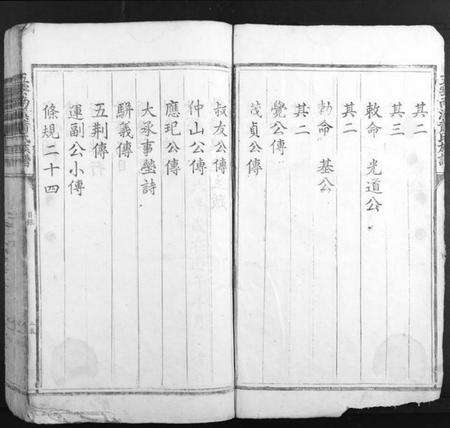 其二
其三
敕命 光道公
其二
勑命 基公
其二
覺公傳
茂貞公傳
叔友公傳
仲山公傳
應玘公傳
大丞事塋詩
騈義傳
五刺傳
運副公小傳
條規二十四
目錄